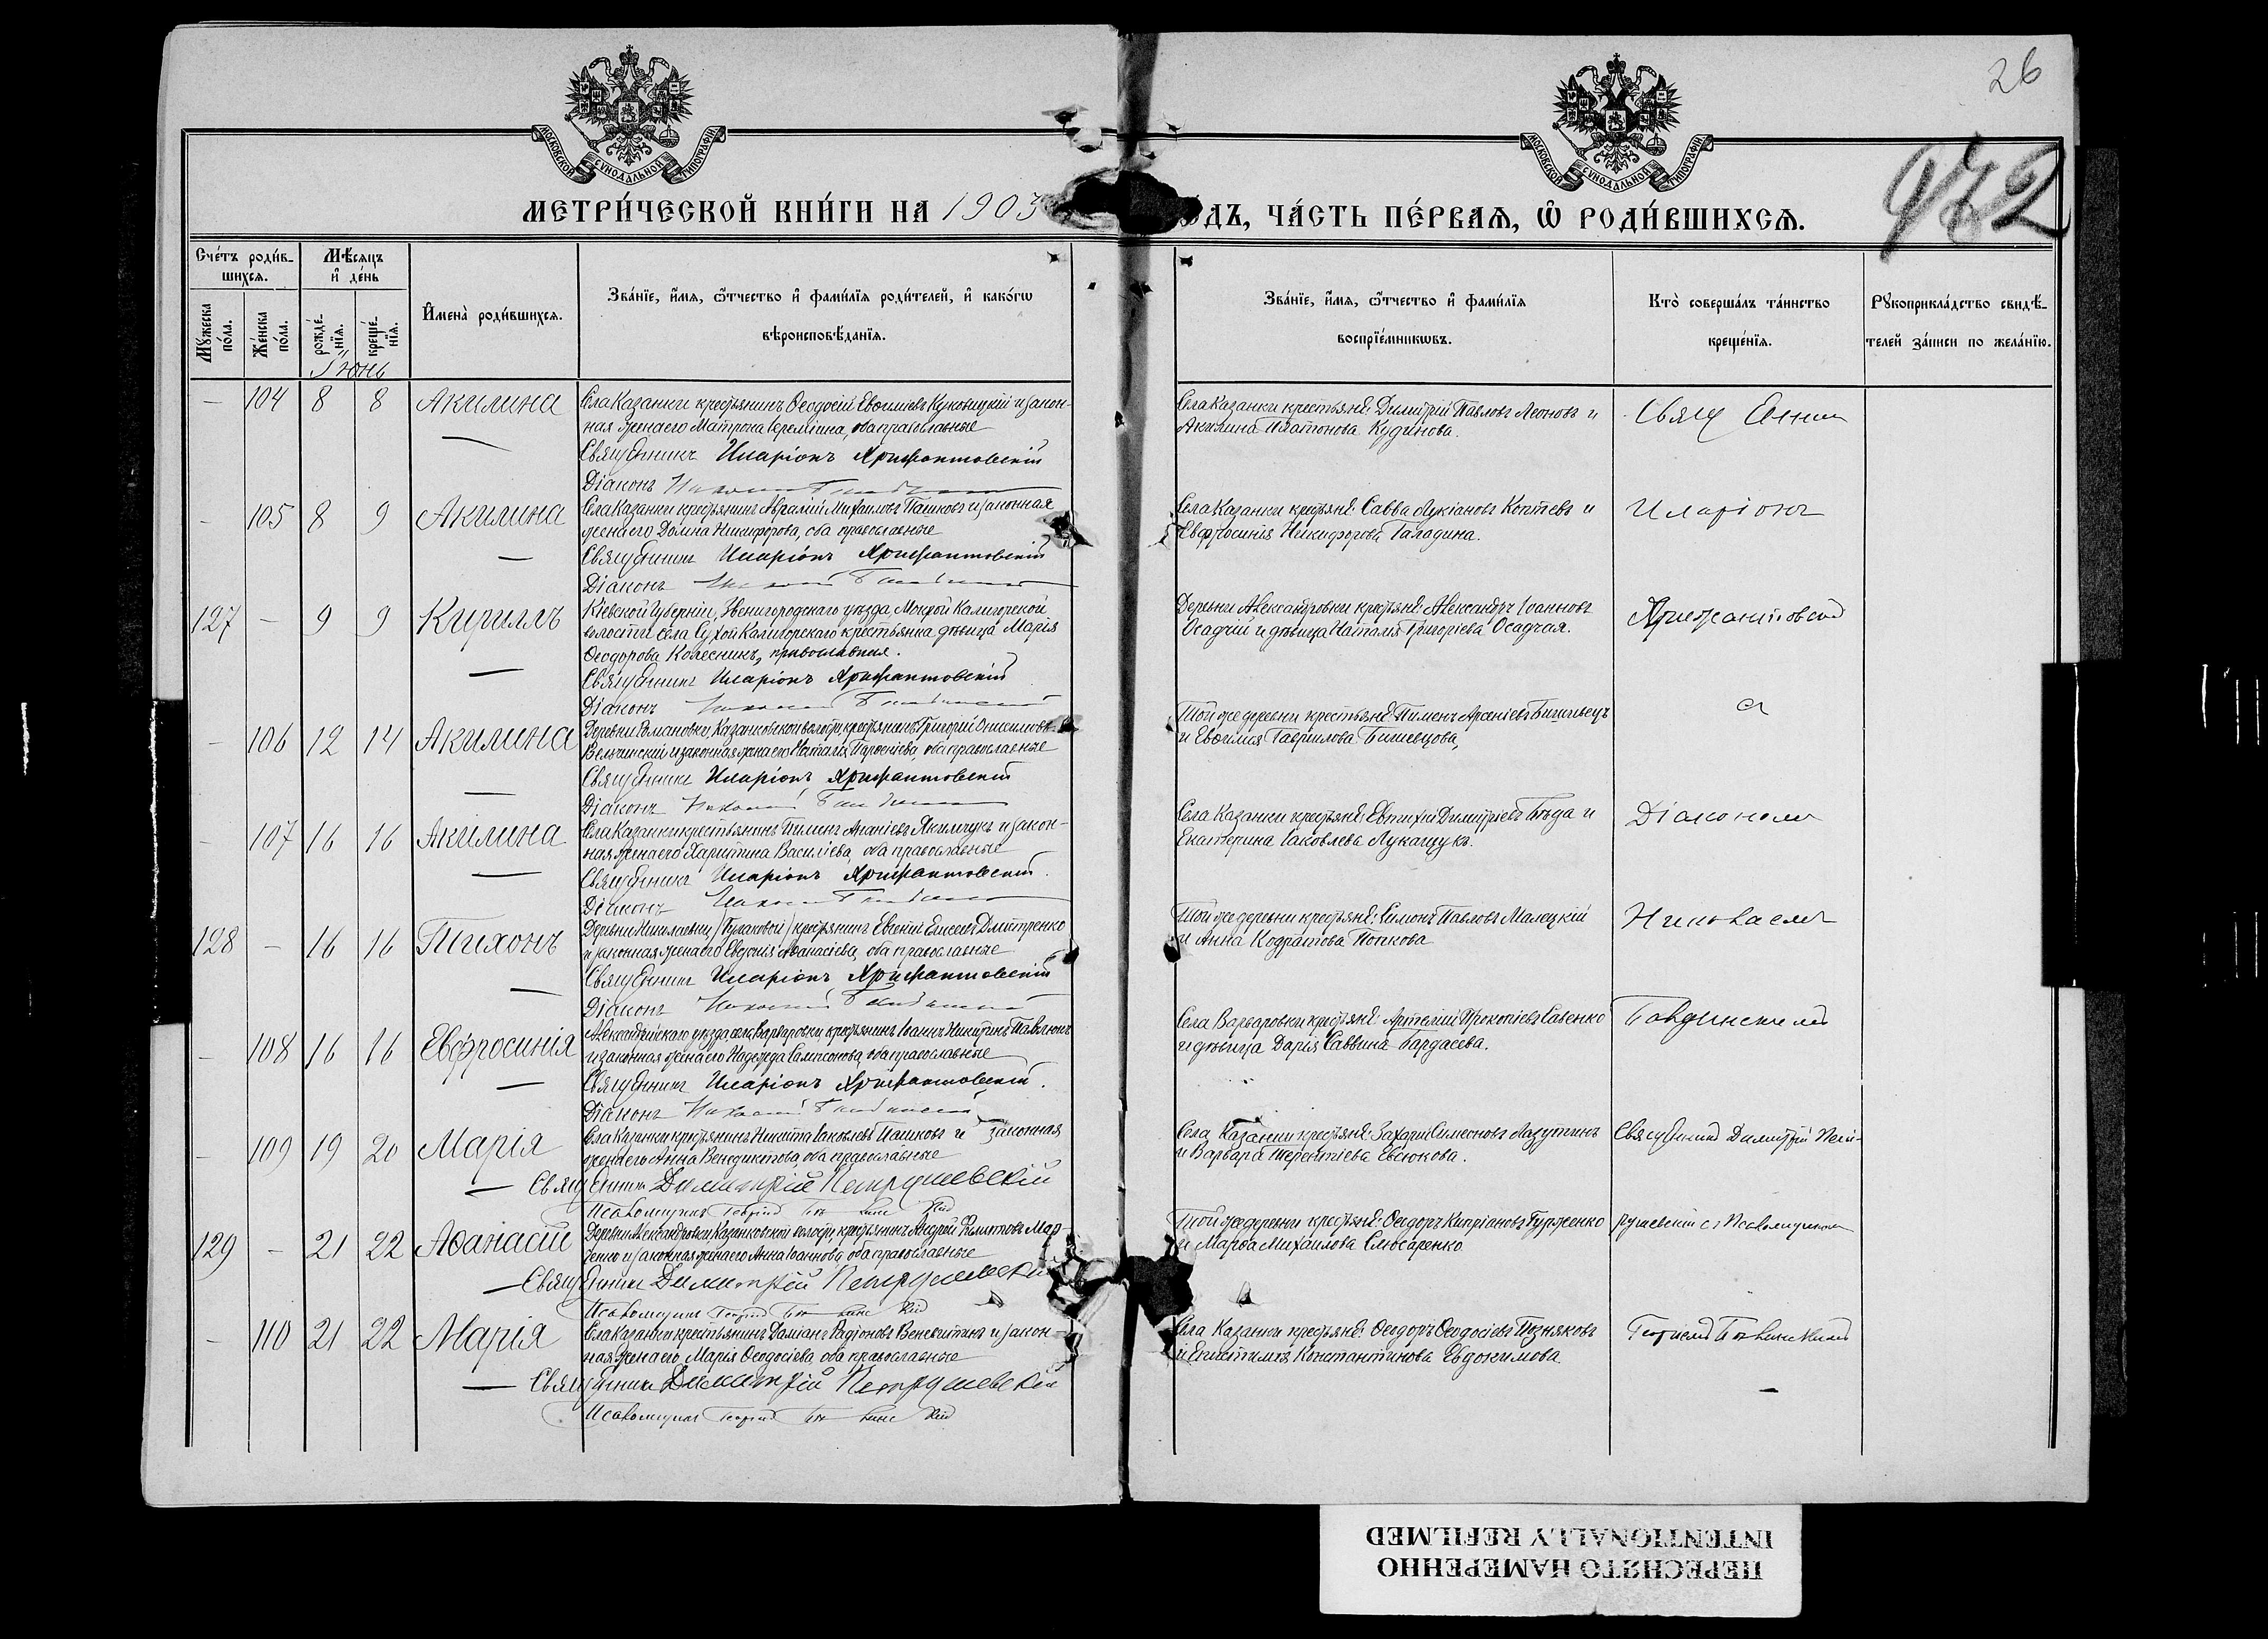 26
972
МОСКОВСКОЙ СУНОДАЛЬНОЙ ТИПОГРАФІИ.
МОСКОВСКОЙ СУНОДАЛЬНОЙ ТИПОГРАФІИ.
МЕТРИ́ЧЕСКОЙ КНИ́ГИ НА 1903
ОДЪ, ЧА́СТЬ ПЕ́РВАѦ, Ѡ РОДИ́ВШИХСѦ.
Сче́тъ роди́в-
шихсѧ.
Мѣсѧцъ
и҆ де́нь
Мꙋ́жеска по́ла.
Же́нска по́ла.
рожде́-нїѧ.
креще́-нїѧ.
И҆мена̀ роди́вшихсѧ.
Зва́нїе, и҆́мѧ, ѻ҆́тчество и҆ фами́лїѧ роди́телей, и҆ како́гѡ
вѣроисповѣ́данїѧ.
Зва́нїе, и҆́мѧ, ѻ҆́тчество и҆ фами́лїѧ
воспрїе́мникѡвъ.
Кто̀ соверша́лъ та́инство
креще́нїѧ.
Рꙋкоприкла́дство свидѣ́-
телей за́писи по жела́нїю.
Іюнь
— 104 8 8 Акилина
Села Казанки крестьянинъ Ѳеодосій Евѳиміевъ Куковицкій и закон-
ная жена его Матрона Іереміина, оба православные
Священникъ Иларіонъ Хрисантовскій
Діаконъ
Села Казанки крестьяне: Димитрій Павловъ Леоновъ и
Акилина Платонова Кудинова.
Свящ
- 105 8 9 Акилина
Села Казанки крестьянинъ Михаиловъ Пашковъ и законная
жена его Домна Никифорова, оба православные
Священникъ Иларіонъ Хрисантовскій
Діаконъ
Села Казанки крестьяне: Савва Лукіановъ Коптевъ и
Евфросинія Никифорова Галадина.
Иларіонъ
127 - 9 9 Кириллъ
Кіевской Губерніи, Звенигородскаго уѣзда, Мокрой Калигорской
волости села Сухой Калигорскаго крестьянка дѣвица Марія
Ѳеодорова Колесникъ, православная.
Священникъ Иларіонъ Хрисантовскій
Діаконъ
Деревни Александровки крестьяне: Александръ Іоанновъ
Осадчій и дѣвица Наталія Григоріева Осадчая.
- 106 12 14 Акилина
Деревни Романовки, Казанковской волости, крестьянинъ Григорій Онисимовъ
и законная жена его Наталія оба православные
Священникъ Иларіонъ Хрисантовскій
Діаконъ
Той же деревни крестьяне: Пименъ
и Евѳимія Гавриилова
съ
- 107 16 16 Акилина
Села Казанки крестьянинъ Пименъ Ананіевъ Якимчукъ и закон-
ная жена его Харитина Василіева, оба православные
Священникъ Иларіонъ Хрисантовскій.
Діаконъ
Села Казанки крестьяне: Евтихій Димитріевъ Бѣда и
Екатерина Іаковлева Лукащукъ.
Діакономъ
128 - 16 16 Тихонъ
Деревни Николаевки крестьянинъ Евгеній Елисеевъ Дмитренко
и законная жена его Евдокія Аѳанасіева, оба православные
Священникъ Иларіонъ Хрисантовскій
Діаконъ
Той же деревни крестьяне: Симонъ Павловъ Малецкій
и Анна Кодратова Попкова
Николаемъ
- 108 16 16 Евфросинія
Александрійскаго уѣзда, села Варваровки, крестьянинъ Іоаннъ Никитинъ Павлюкъ
и законная жена его Надежда Сампсонова, оба православные
Священникъ Иларіонъ Хрисантовскій.
Діаконъ
Села Варваровки крестьяне: Артемій Прокопіевъ Савенко
и дѣвица Дарія Саввина Бардасева.
- 109 19 20 Марія
Села Казанки крестьянинъ Никита Іаковлевъ Пашковъ и законная
жена его Анна Венедиктова, оба православные
Священникъ Димитрій Петрушевскій
Псаломщикъ Георгій
Села Казанки крестьяне: Захарій Симеоновъ Лазутинъ
и Варвара Терентіева Евсюкова.
Священникъ Димитрій Пет-
129 - 21 22 Аѳанасій
Деревни Александровки Казанковской волости, крестьянинъ Андрей Филиповъ Мар-
ченко и законная жена его Анна Іоаннова, оба православные
Священникъ Димитрій Петрушевскій
Псаломщикъ Георгій
Той же деревни крестьяне: Ѳеодоръ Кипріановъ Гурженко
и Марѳа Михаилова Слюсаренко.
рушевскій съ Псаломщикомъ
- 110 21 22 Марія
Села Казанки крестьянинъ Даміанъ Родіоновъ и закон-
ная жена его Марія Ѳеодосіева, оба православные
Священникъ Димитрій Петрушевскій
Псаломщикъ Георгій
Села Казанки крестьяне: Ѳеодоръ Ѳеодосіевъ Позняковъ
и Епистимія Константинова Евдокимова.
Георгіемъ
ПЕРЕСНЯТО НАМЕРЕННО
INTENTIONALLY REFILMED